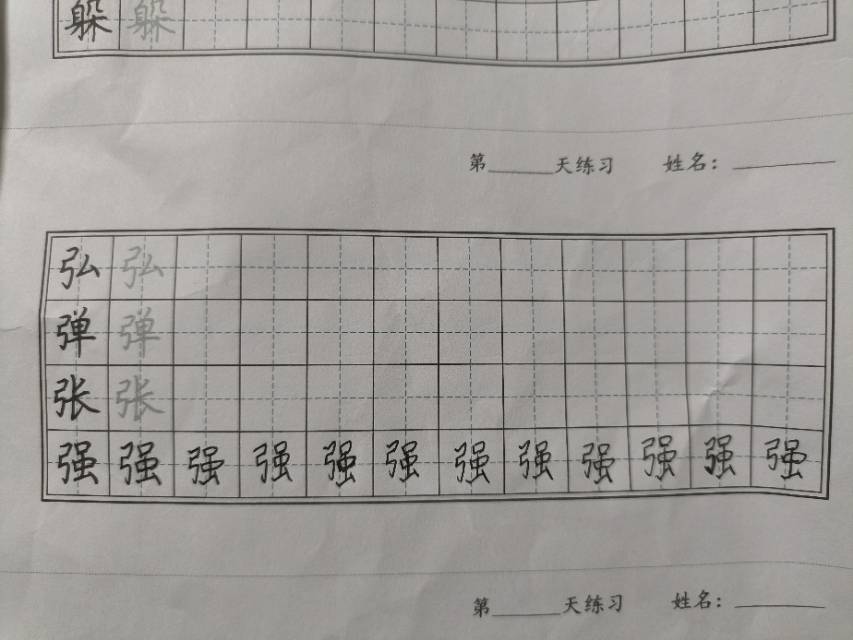 躲 躲
第______天练习 姓名：______
弘 弘
弹 弹
张 张
强 强 强 强 强 强 强 强 强 强 强 强
第______天练习 姓名：______